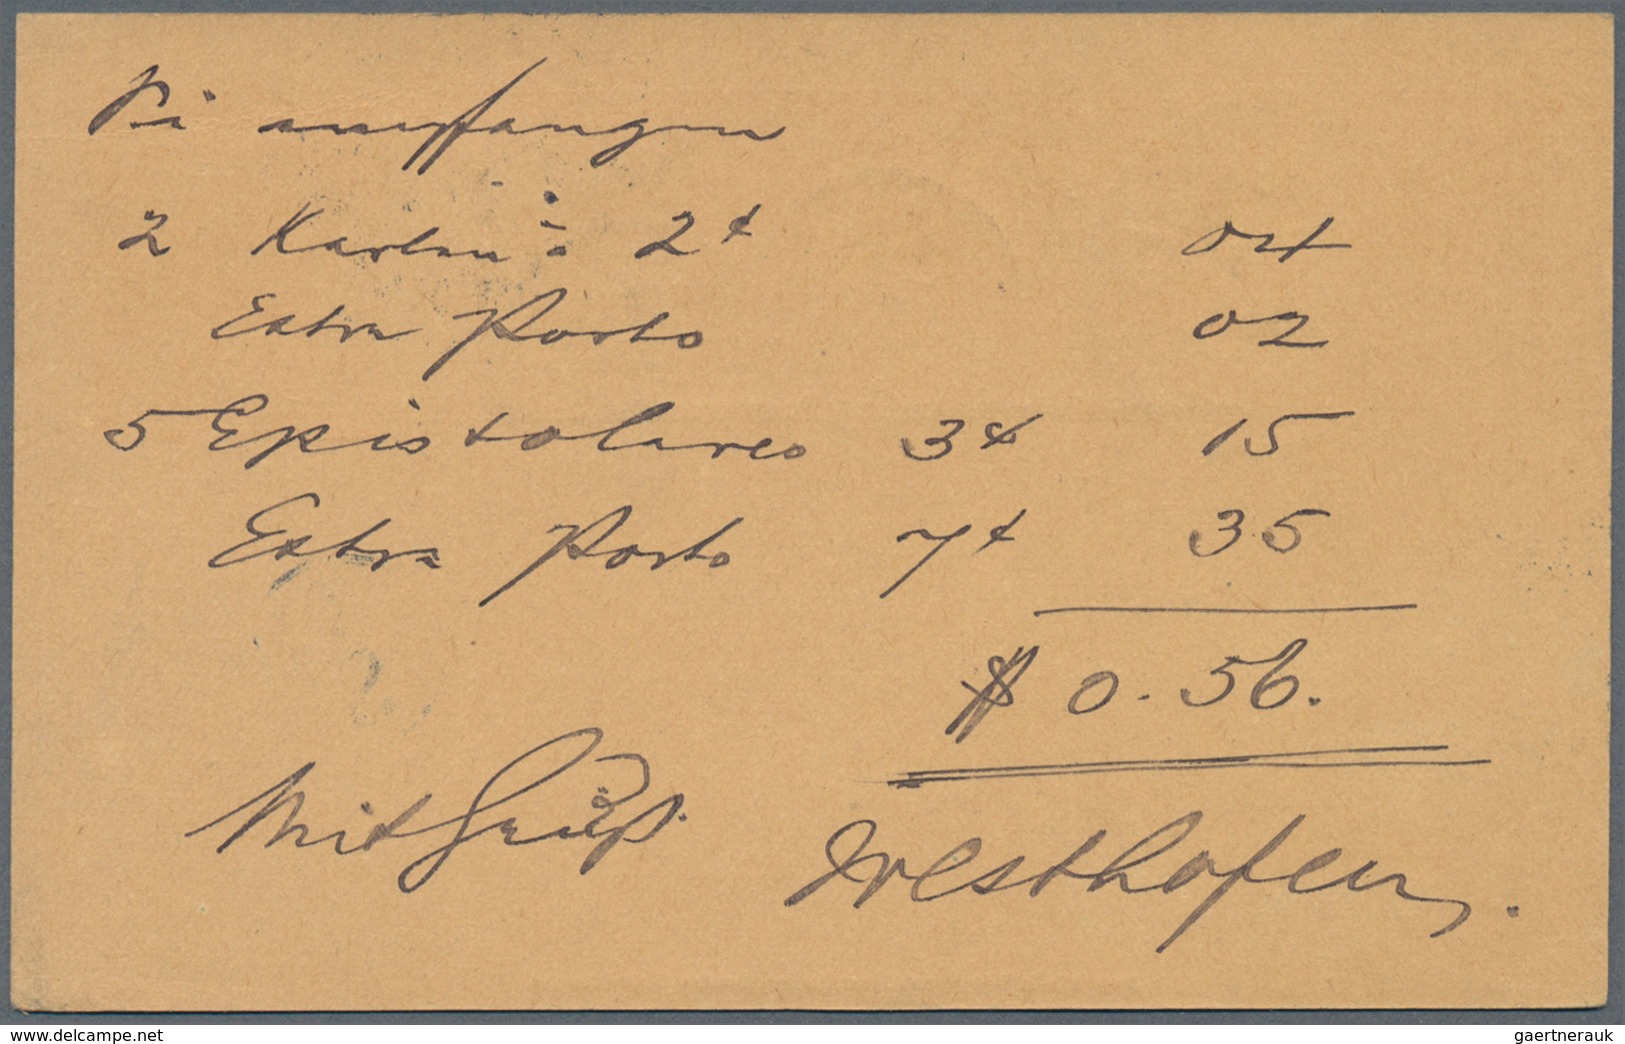 Sie empfangen
2 Karten à 2¢ 04
Extra Porto 02
5 Epistolares 3¢ 15
Extra Porto 7¢ 35
$ 0.56.
Mit Gruß.
Westhofen.
www.delcampe.net
gaertnerauk